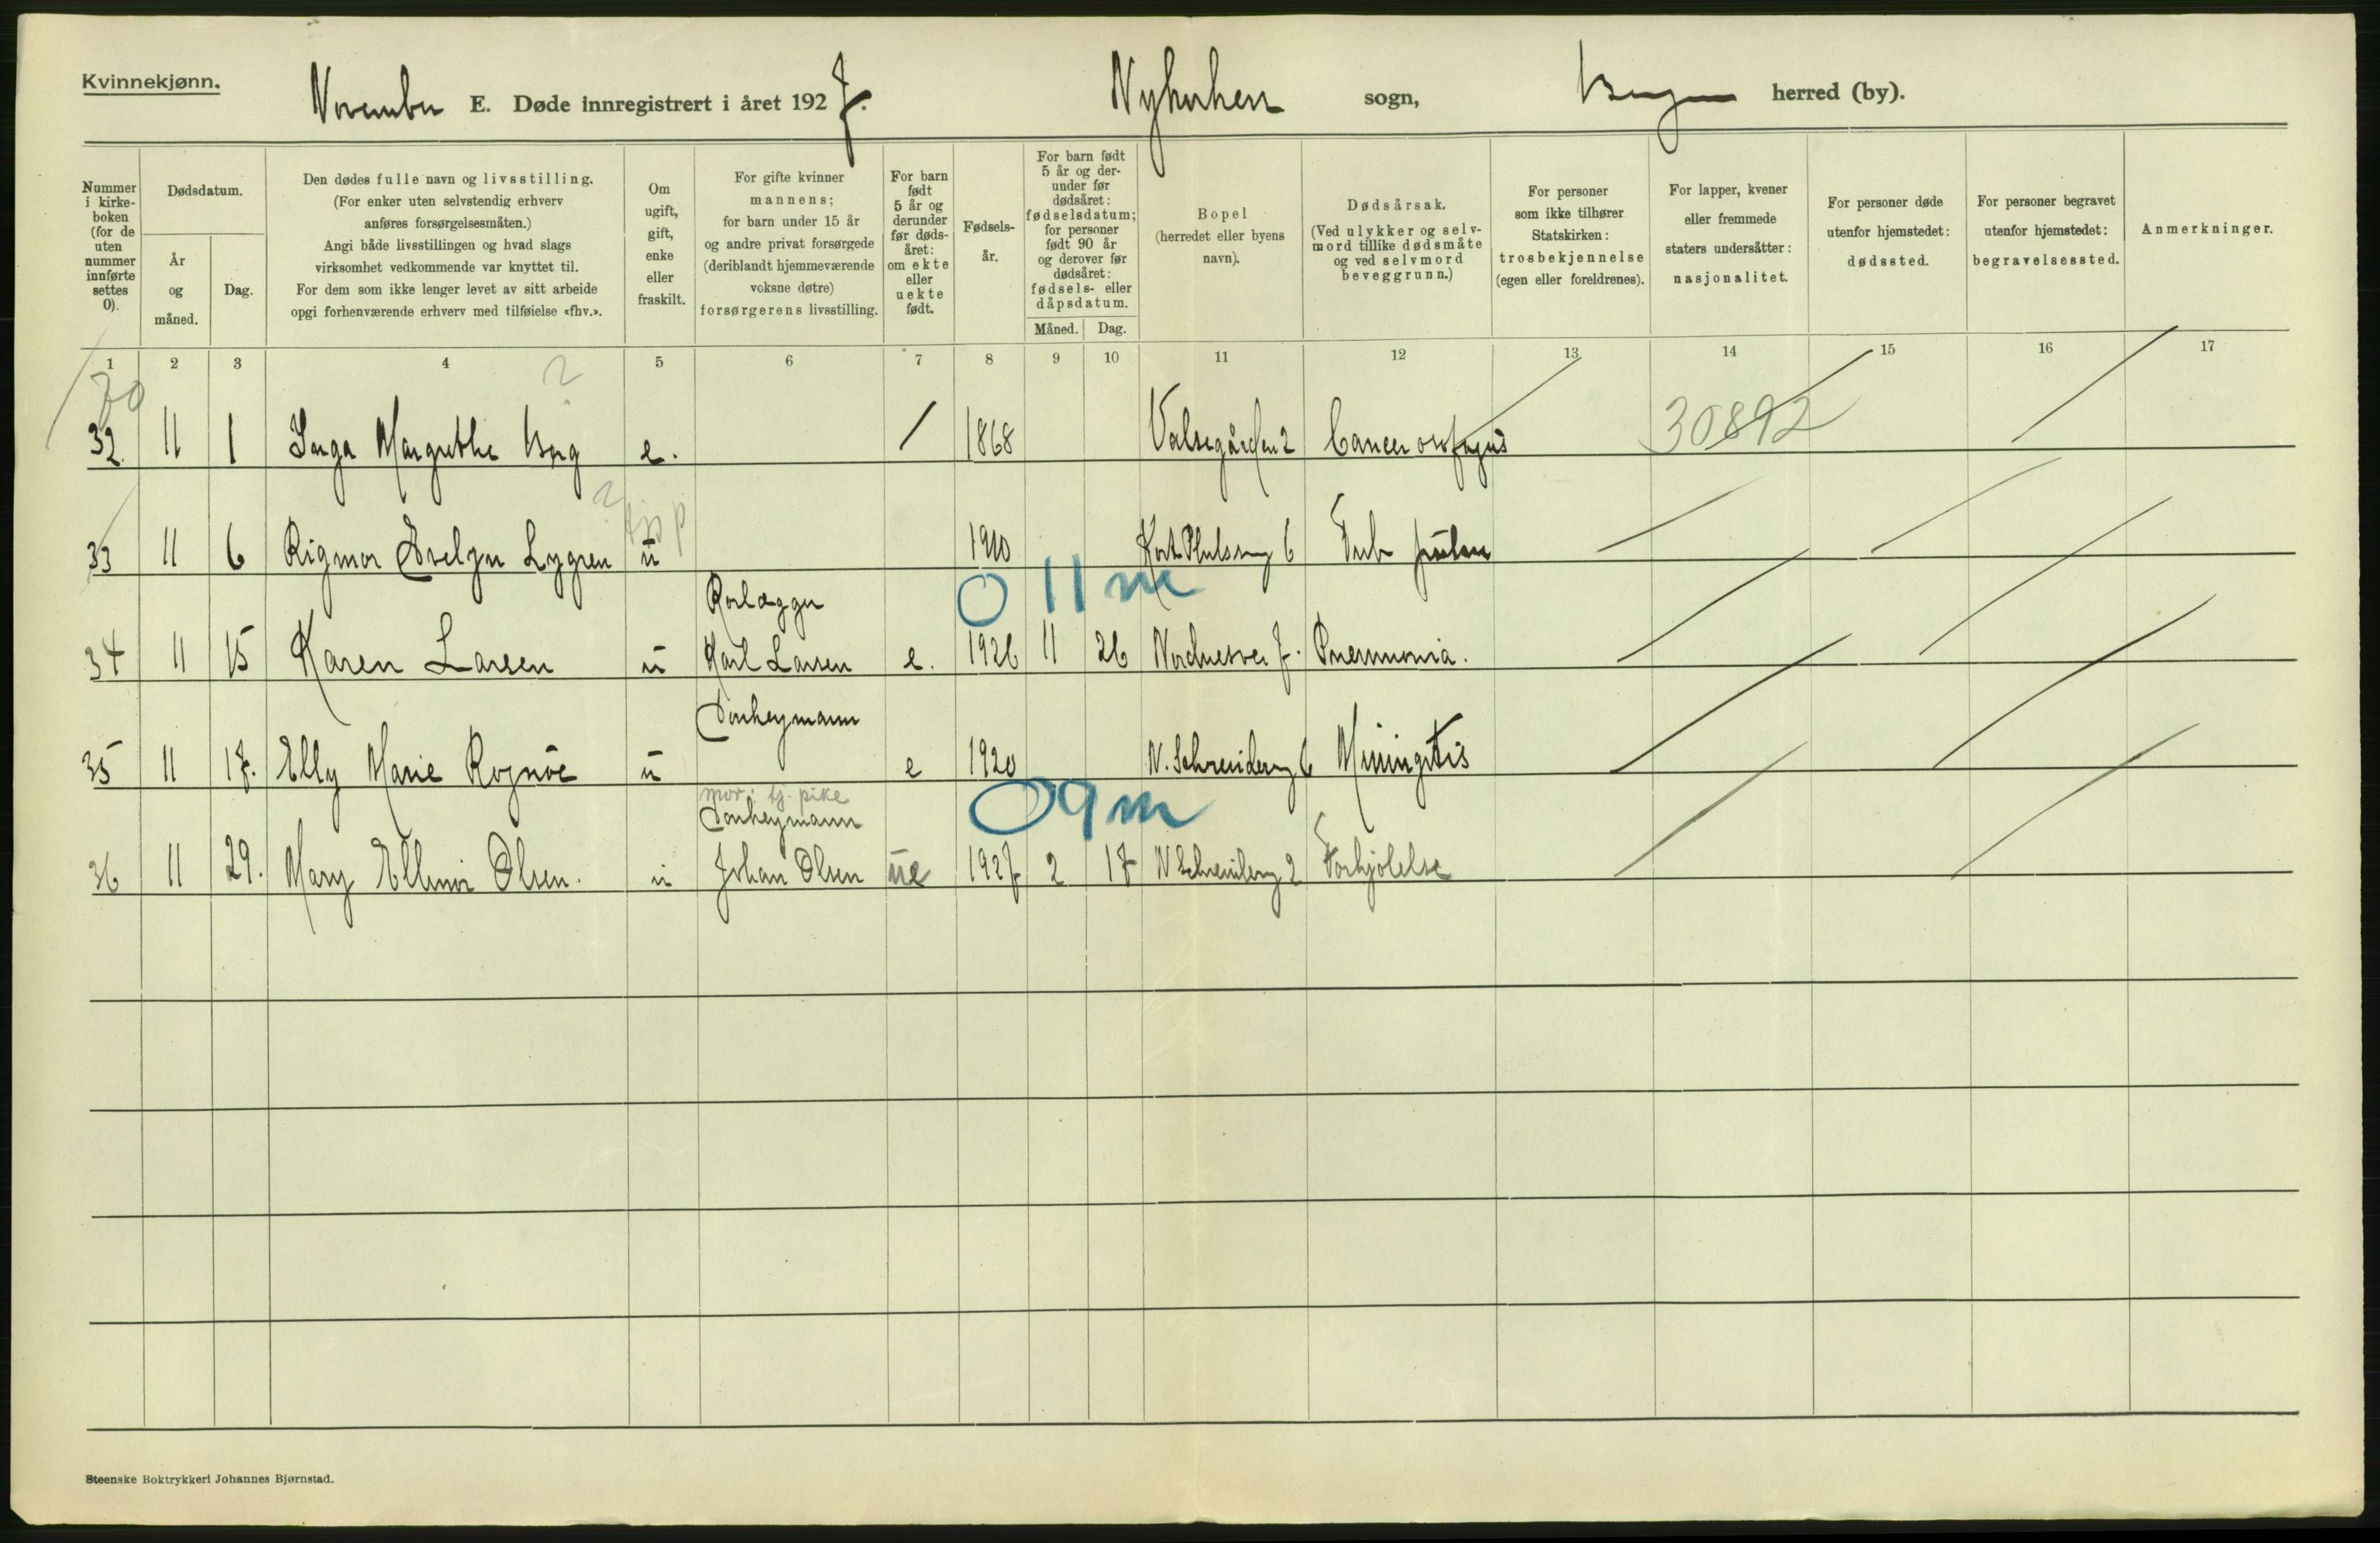 Kvinnekjønn.
November E. Døde innregistrert i året 1927. Nykirken sogn, Bergen herred (by).
Nummer i kirke- boken (for de uten nummer innførte settes 0).
Dødsdatum.
År og måned.
Dag.
Den dødes fulle navn og livsstilling.
(For enker uten selvstendig erhverv
anføres forsørgelsesmåten.)
Angi både livsstillingen og hvad slags
virksomhet vedkommende var knyttet til.
For dem som ikke lenger levet av sitt arbeide
opgi forhenværende erhverv med tilføielse «fhv.».
Om ugift, gift, enke eller fraskilt.
For gifte kvinner
mannens;
for barn under 15 år
og andre privat forsørgede
(deriblandt hjemmeværende
voksne døtre)
forsørgerens livsstilling.
For barn født 5 år og derunder før døds- året: om ekte eller uekte født.
Fødsels- år.
For barn født 5 år og der- under før dødsåret: fødselsdatum; for personer født 90 år og derover før dødsåret: fødsels- eller dåpsdatum.
Måned. Dag.
Bopel
(herredet eller byens
navn).
Dødsårsak.
(Ved ulykker og selv-
mord tillike dødsmåte
og ved selvmord
beveggrunn.)
For personer
som ikke tilhører
Statskirken:
trosbekjennelse
(egen eller foreldrenes).
For lapper, kvener
eller fremmede
staters undersåtter:
nasjonalitet.
For personer døde
utenfor hjemstedet:
dødssted.
For personer begravet
utenfor hjemstedet:
begravelsessted.
Anmerkninger.
1 2 3 4 5 6 7 8 9 10 11 12 13 14 15 16 17
30 ?
32. 11 1 Inga Margrethe Berg e. / 1868 Valsegården 2 Cancer oesofagus 30892
?
33 11 6 Rigmor Evelyn Lygren u 1910 6 Tub pulm
Rørlægger 0 11 m
34 11 15 Karen Larsen u Karl Larsen e. 1926 11 26 Nordnesvei 7. Pneumonia.
Tonheymann
35 11 17. Elly Marie Rognøe u e 1920 N. 6 Miningitis
mor: tj. pike 09 m
Tonheymann
36 11 29. Mary Ellinor Olsen. u Johan Olsen ue 1927 2 17 N 2 Forkjølelse
Steenske Boktrykkeri Johannes Bjørnstad.